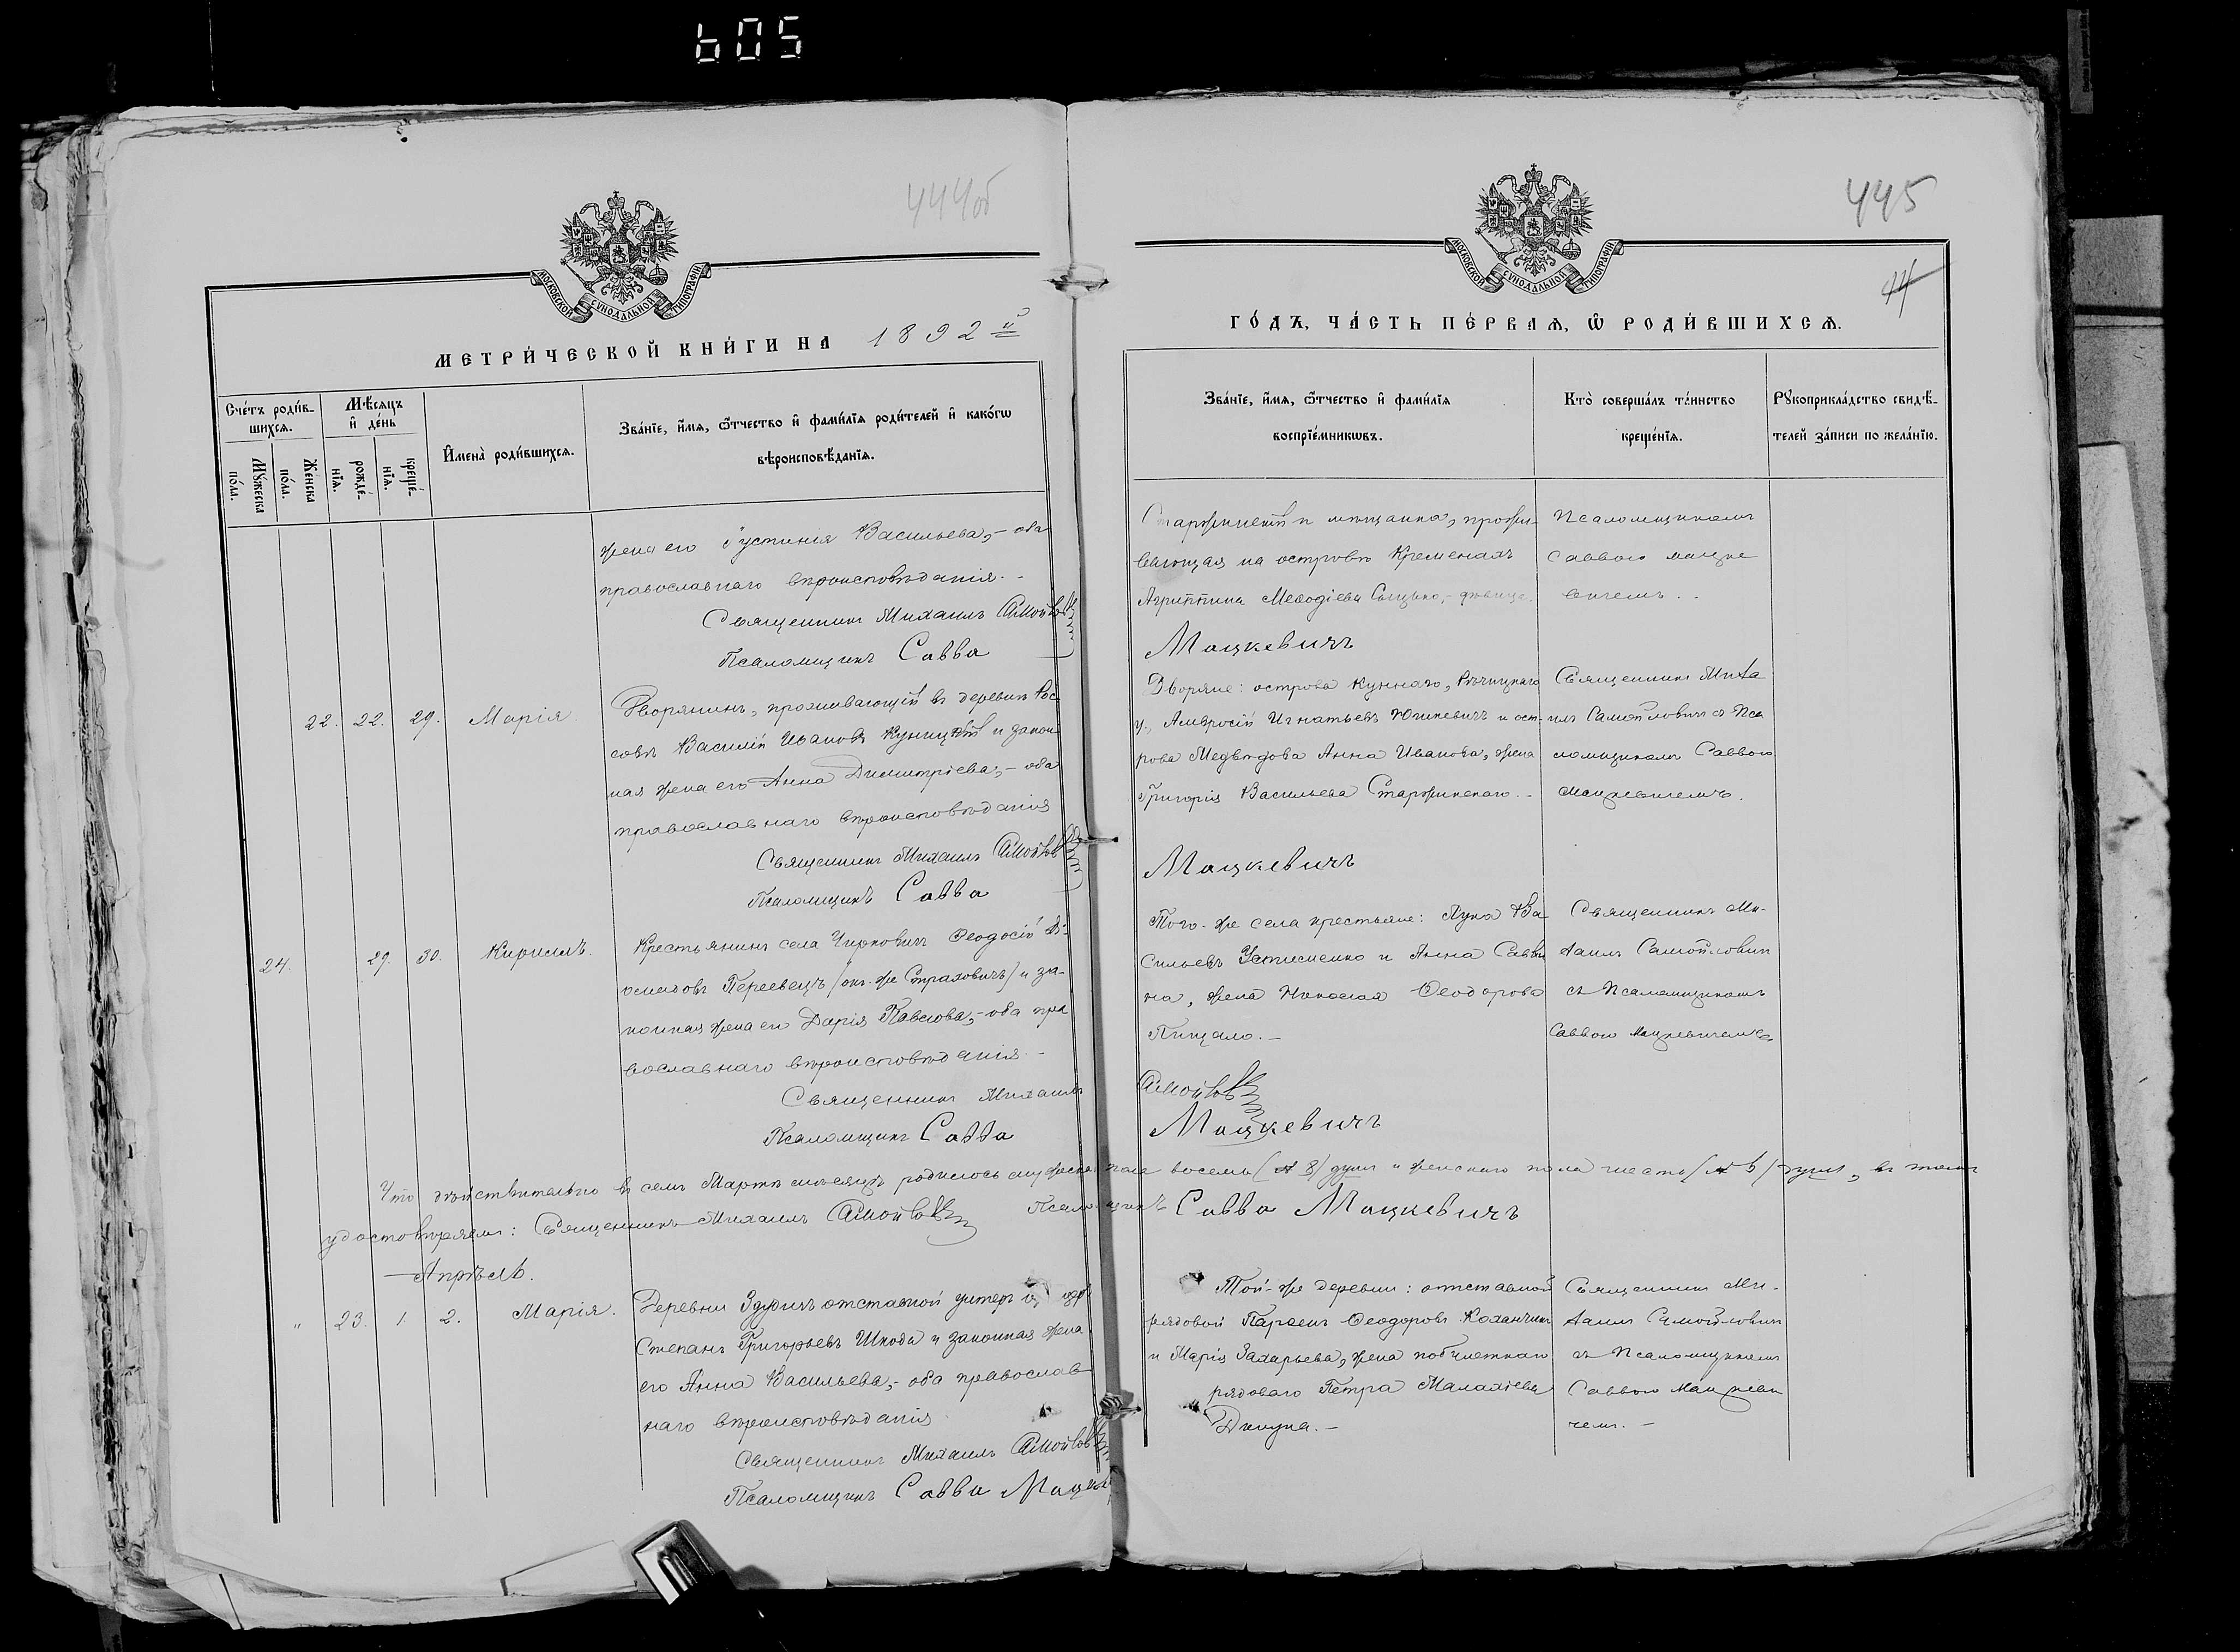 605
444об
МОСКОВСКОЙ СѴНОДАЛЬНОЙ ТИПОГРАФІИ
МЕТРИ́ЧЕСКОЙ КНИ́ГИ НА 1892й
Сче́тъ роди́в-
шихсѧ.
Мꙋ́жеска
по́ла.
Же́нска
по́ла.
Мѣ́сѧцъ
и҆ де́нь
рожде́-
нїѧ.
креще́-
нїѧ.
И҆мена̀ роди́вшихсѧ.
Зва́нїе, и҆́мѧ, ѻ҆́тчество и҆ фами́лїѧ роди́телей и҆ како́гѡ
вѣроисповѣ́данїѧ.
жена его Іустинія Васильева,- оба
православнаго вѣроисповѣданія.-
Священникъ Михаилъ Самойлов
Псаломщикъ Савва
22. 22. 29. Марія. Дворянинъ, проживающій въ деревни Рос
совъ Василій Ивановъ Куницкій и закон
ная жена его Анна Димитріева,- оба
православнаго вѣроисповѣданія
Священникъ Михаилъ Самойлов
Псаломщикъ Савва
24. 29. 30. Кириллъ. Крестьянинъ села Чирковичъ Ѳеодосій
Переевецъ (онъ-же Страховичъ) и за-
конная жена его Дарія Павлова,- оба пра
вославнаго вѣроисповѣданія.-
Священникъ Михаилъ
Псаломщикъ Савва
Что дѣйствительно въ семъ Мартѣ мѣсяцѣ родилось мужеска пола восемь (№ 8) душъ и женскаго пола шесть (№ 6) душъ, въ томъ
удостовѣряемъ: Священникъ Михаилъ Самойлов Псаломщикъ Савва Мацкевичъ
Апрѣль.
" 23. 1. 2. Марія. Деревни Здудичъ отставной унтеръ
Степанъ Григорьевъ Шкода и законная жена
его Анна Васильева,- оба православ-
наго вѣроисповѣданія
Священникъ Михаилъ Самойлов
Псаломщикъ Савва Мацкев
445
44
МОСКОВСКОЙ СѴНОДАЛЬНОЙ ТИПОГРАФІИ
ГО́ДЪ, ЧА́СТЬ ПЕ́РВАѦ, Ѽ РОДИ́ВШИХСѦ.
Зва́нїе, и҆́мѧ, ѻ҆́тчество и҆ фами́лїѧ
воспрїе́мникѡвъ.
Кто̀ соверша́лъ та́инство
креще́нїѧ.
Рꙋкоприкла́дство свидѣ́-
телей за́писи по жела́нїю.
Старжинскій и мѣщанка, прожи-
вающая на островѣ Кременахъ
Агриппина Меѳодіева дѣвица.
Псаломщикомъ
Саввою Мацке
вичемъ..
Мацкевичъ
Дворяне: острова Куннаго, Рѣчицкаго
у., Амвросій Игнатьевъ Юшкевичъ и ост-
рова Медвѣдова Анна Иванова, жена
Григорія Васильева Старжинскаго.-
Священникъ Миха
илъ Самойловичъ съ Пса
ломщикомъ Саввою
Мацкевичемъ.
Мацкевичъ
Того-же села крестьяне: Лука Ва-
сильевъ Устименко и Анна Савви
на, жена Николая Ѳеодорова
Пищало.-
Священникъ Ми-
хаилъ Самойловичъ
съ Псаломщикомъ
Саввою Мацкевичемъ
Самойлов
Мацкевичъ
Той-же деревни: отставной
рядовой Парѳенъ Ѳеодоровъ Коханчикъ
и Марія Захарьева, жена побилетнаго
рядоваго Петра Малахіева
Дикуна.-
Священникъ Ми-
хаилъ Самойловичъ
съ Псаломщикомъ
Саввою Мацкеви
чемъ.-